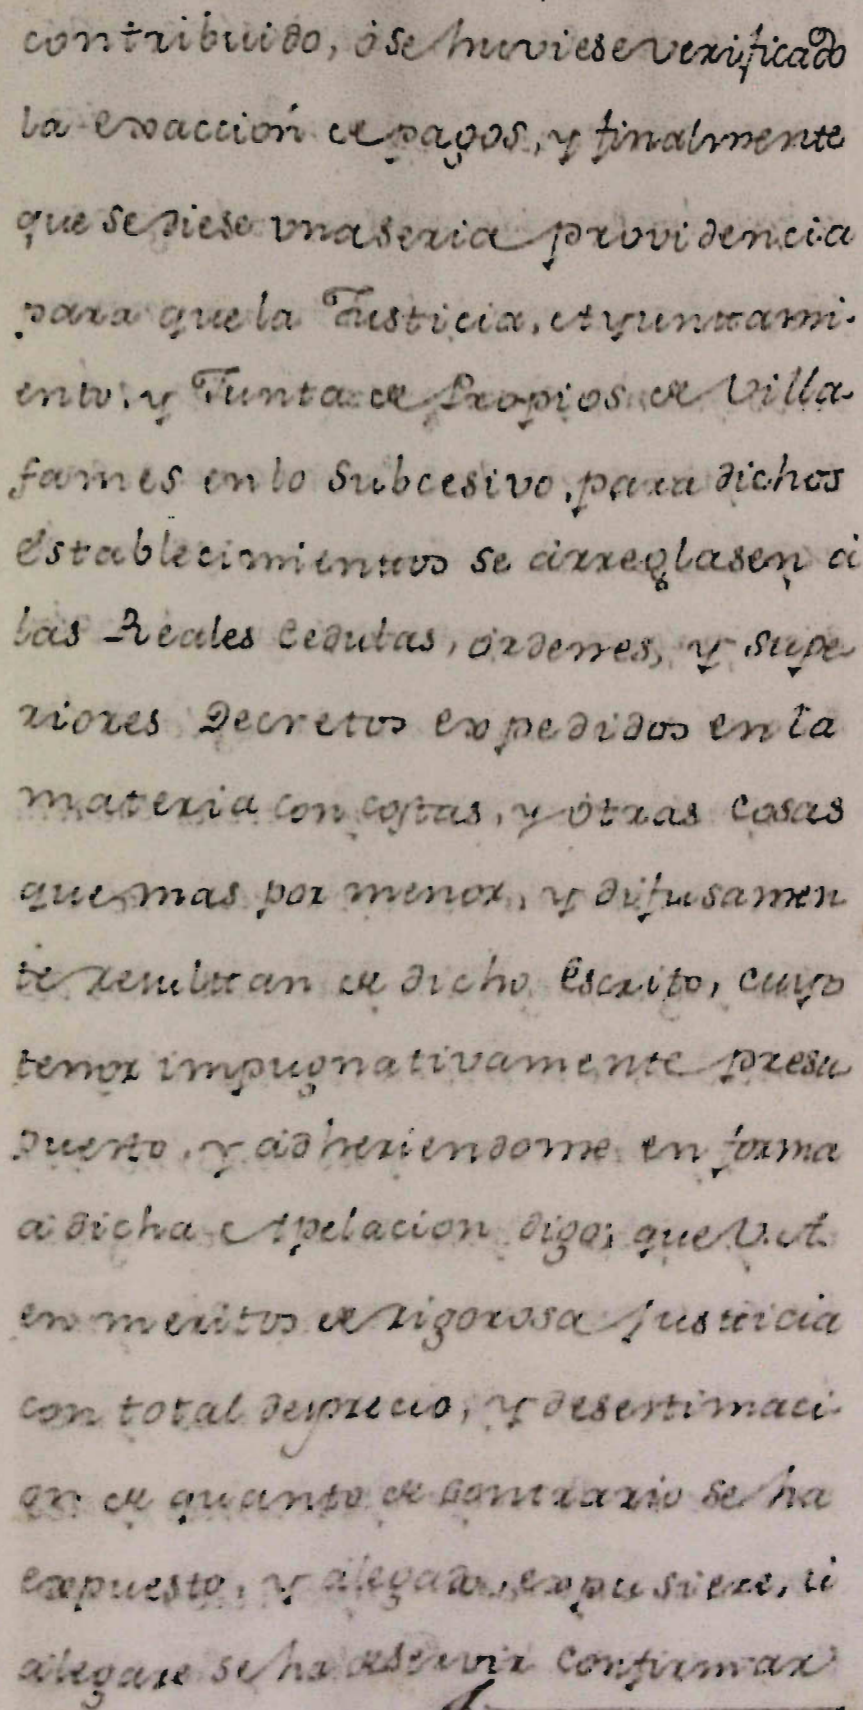 contribuido, ò se huviese verificado
la exacción de pagos, y finalmente
que se diese una seria providencia
para que la Justicia, Ayunttami-
ento, y Junta de Propios de Villa-
fames en lo subcesivo, para dichos
establecimientos se arreglasen à
las Reales Cedulas, ordenes, y supe
riores Decretos expedidos en la
materia con costas, y otras cosas
que mas por menor, y difusamen
te resulttan de dicho Escrito, cuyo
tenor impugnativamente presu
puesto, y adheriendome en forma
a dicha Apelacion digo; que V.A.
en meritos de rigorosa justticia
con total desprecio, y desestimaci-
on de quanto de contrario se ha
expuesto, y alegado, expusiere, ú
alegare se ha de servir confirmar